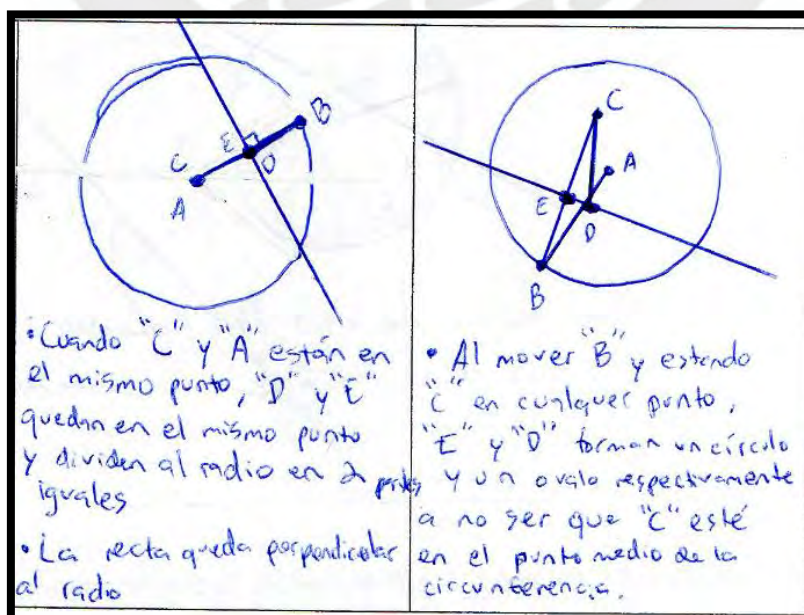 E
B
C
D
A
• Cuando "C" y "A" están en
el mismo punto, "D" y "E"
quedan en el mismo punto
y dividen al radio en 2 partes
iguales
• La recta queda perpendicular
al radio
C
A
E
D
B
• Al mover "B" y estando
"C" en cualquer punto,
"E" y "D" forman un círculo
y un ovalo respectivamente
a no ser que "C" esté
en el punto medio de la
circunferencia.